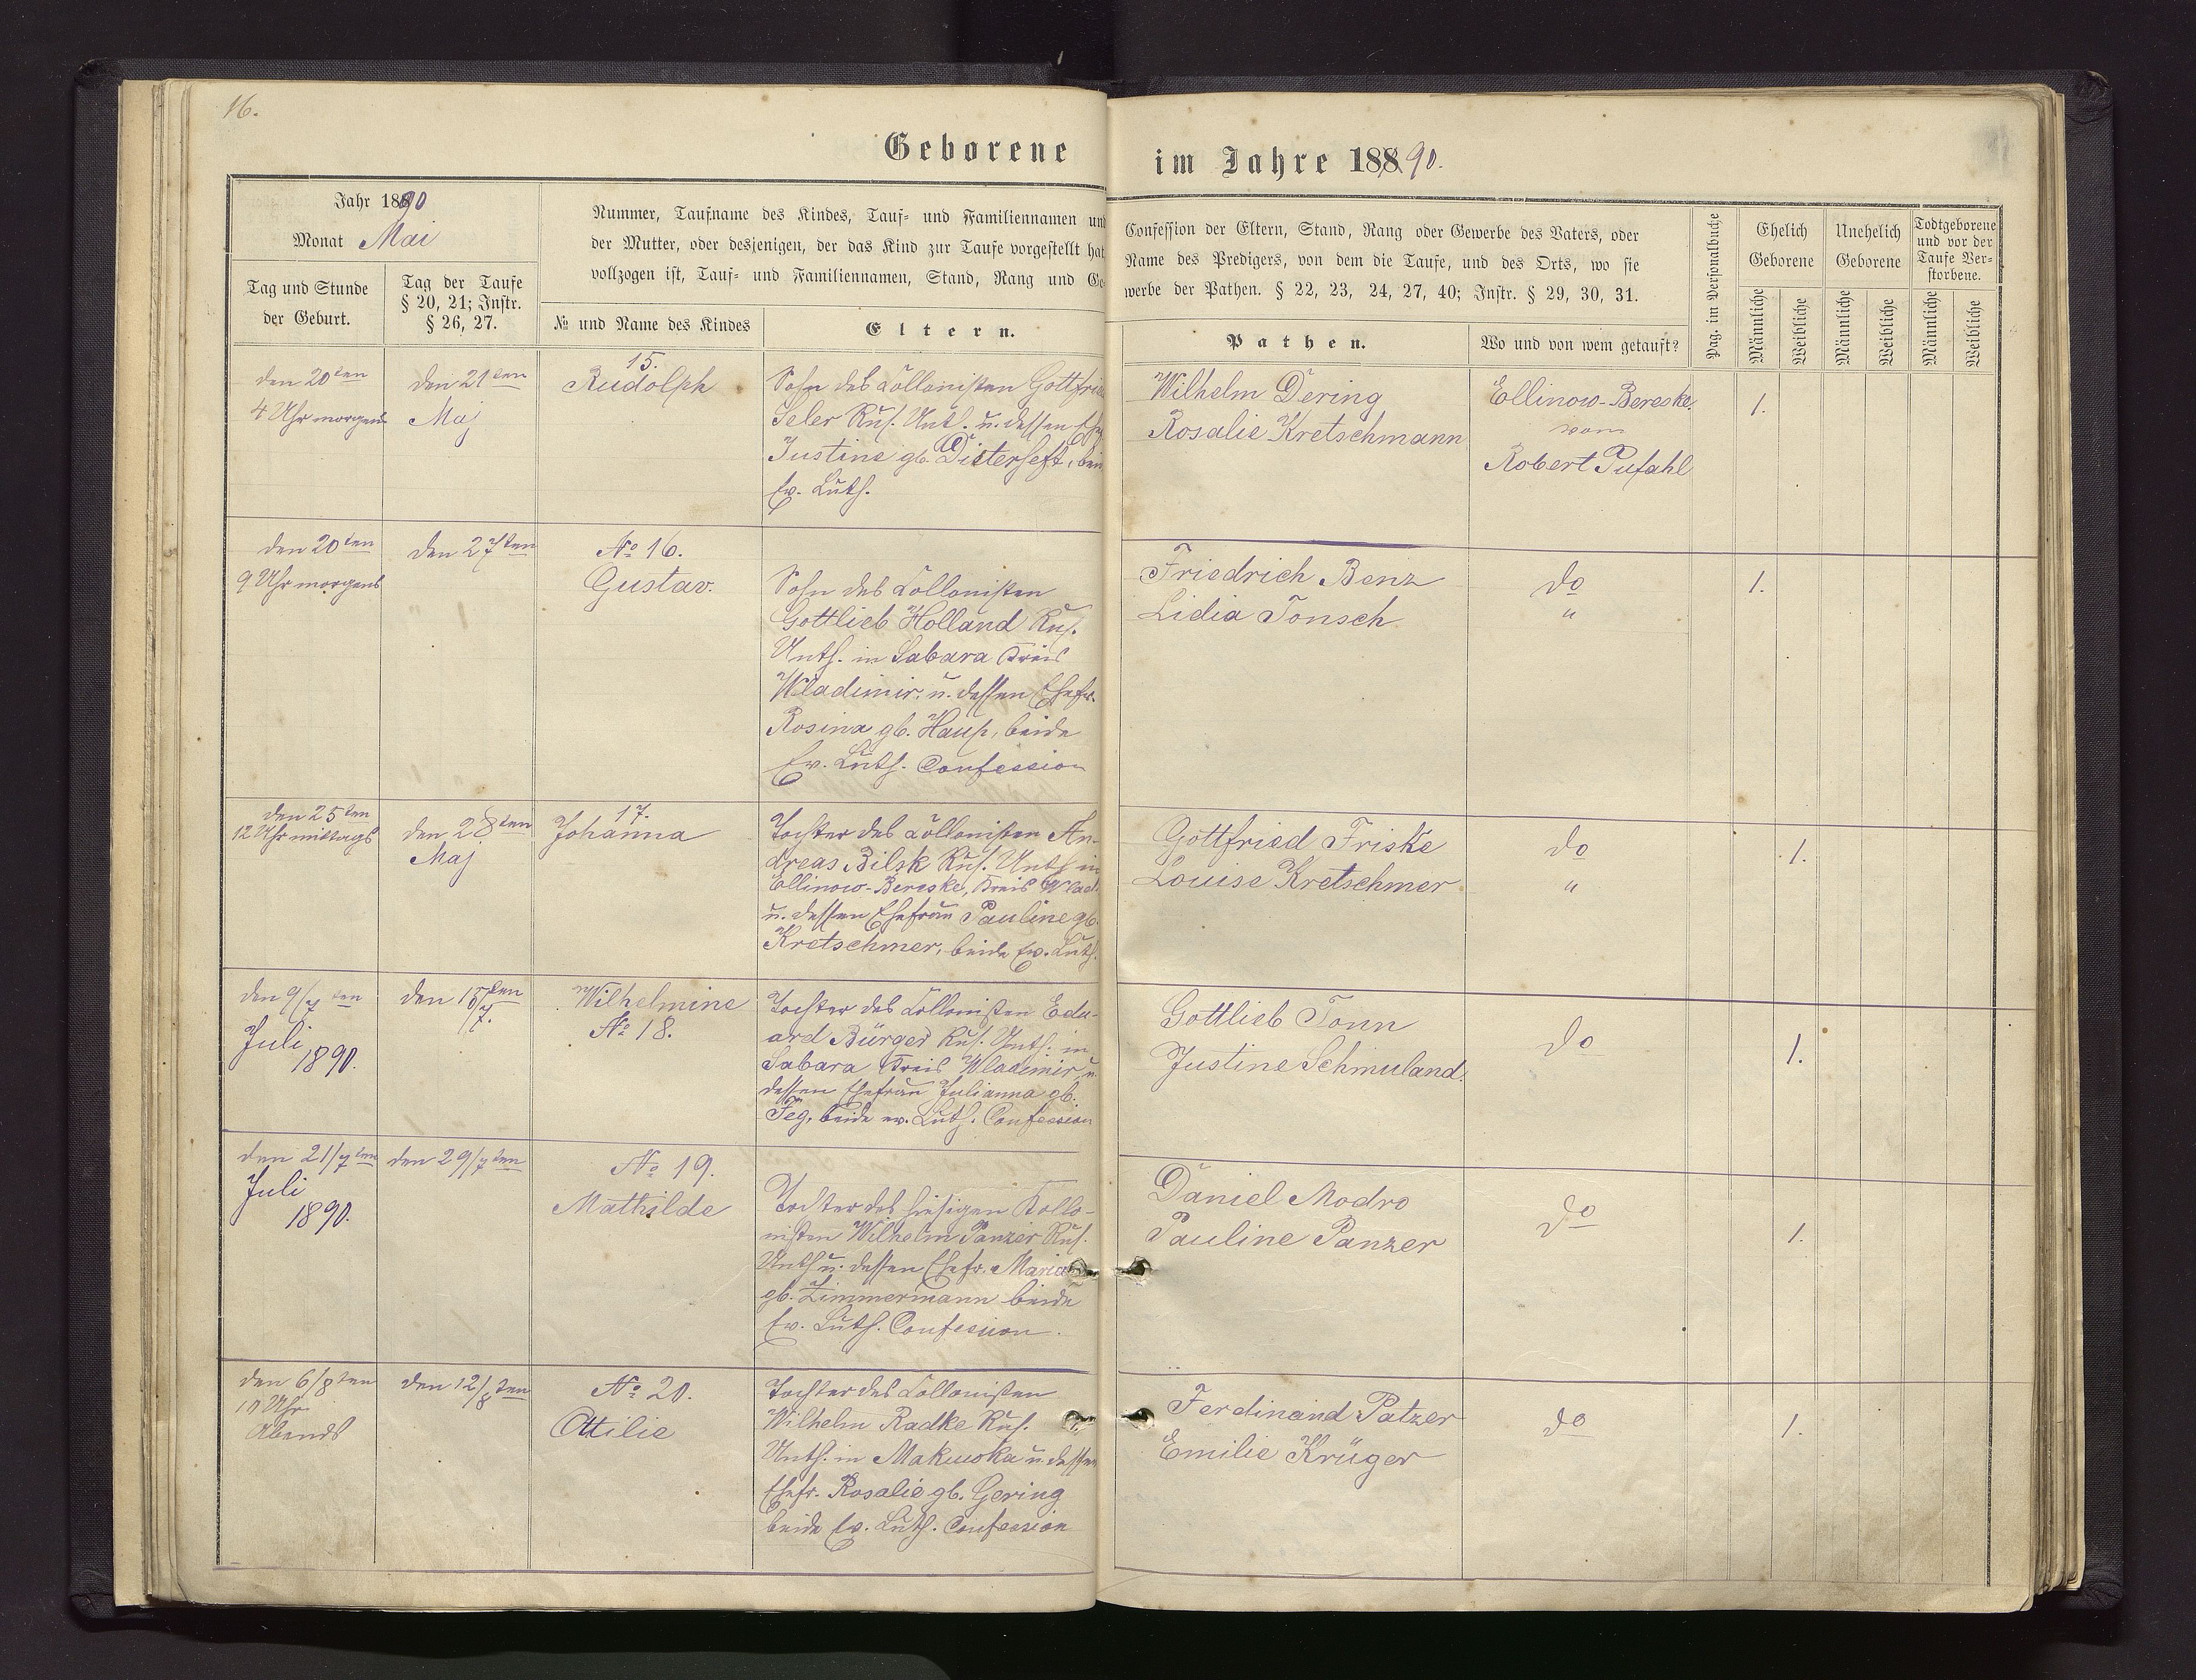 16.
Geborene im Jahre 188 90.
Jahr 18890
Monat Mai
Tag und Stunde
der Geburt.
Tag der Taufe
§ 20, 21; Instr.
§ 26, 27.
Nummer, Taufname des Kindes, Tauf- und Familiennamen und
der Mutter, oder desjenigen, der das Kind zur Taufe vorgestellt hat
vollzogen ist, Tauf- und Familiennamen, Stand, Rang und Ge-
№ und Name des Kindes
Eltern.
Confession der Eltern, Stand, Rang oder Gewerbe des Vaters, oder
Name des Predigers, von dem die Taufe, und des Orts, wo sie
werbe der Pathen. § 22, 23, 24, 27, 40; Instr. § 29, 30, 31.
Pathen.
Wo und von wem getauft?
Pag. im Personalbuche
Ehelich
Geborene
Unehelich
Geborene
Todtgeborene
und vor der
Taufe Ver-
storbene.
Männliche
Weibliche
Männliche
Weibliche
Männliche
Weibliche
den 20ten
4 Uhr morgens
den 21ten
Maj
15.
Rudolph
Sohn des Collonisten Gottfried
Seler Rus. Unt. u. dessen Ehf
Justine gb. Disterheft, beide
Ev. Luth.
Wilhelm Dering
Rosalie Kretschmann
Ellinow-Bereske.
vom
Robert Pufahl
1.
den 20ten
9 Uhr morgens
den 27ten
"
№ 16.
Gustav.
Sohn des Collonisten
Gottlieb Holland Rus.
Unth. in Sabara Kreis
Wladimir. u. dessen Ehefr.
Rosina gb. Haup, beide
Ev. Luth. Confession
Friedrich Benz
Lidia Tonsch
do
"
1.
den 25ten
12 Uhr mittags
den 28ten
Maj
17.
Johanna
Tochter des Collonisten An-
dreas Bilsk Rus. Unth in
Ellinow-Bereske, Kreis Wlad.
u. dessen Ehefrau Pauline gb.
Kretschmer, beide Ev. Luth.
Gottfried Friske
Louise Kretschmer
do
"
1.
den 9/7ten
Juli
1890.
den 15/7ten
Wilhelmine
№ 18.
Tochter des Collonisten Edu-
ard Bürger Rus. Unth. in
Sabara Kreis Wladimir u.
dessen Ehefrau Julianna gb.
Teg, beide ev. Luth. Confession
Gottlieb Tonn
Justine Schmuland.
do
1.
den 21/7ten
Juli
1890.
den 29/7ten
№ 19.
Mathilde
Tochter des hiesigen Collo-
nisten Wilhelm Panzer Rus.
Unth u. dessen Ehefr. Maria
gb. Zimmermann beide
Ev. Luth. Confession.
Daniel Modro
Pauline Panzer
do
1.
den 6/8ten
10 Uhr
Abends
den 12/8ten
№ 20.
Ottilie
Tochter des Collonisten
Wilhelm Radke Rus.
Unth. in Makuoka u dessen
Ehefr. Rosalie gb. Gering
beide Ev. Luth. Confession
Ferdinand Patzer
Emilie Krüger
do
1.